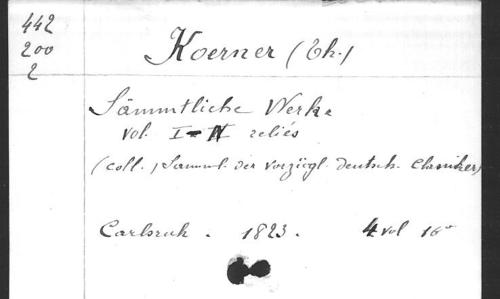 442
200
2
Koerner (Th.)
Sämmtliche Werke
vol. I-IV reliés
(coll.) Samml. der vorzügl. deutsch. Classiker)
Carlsruh. 1823. 4 vol 16°